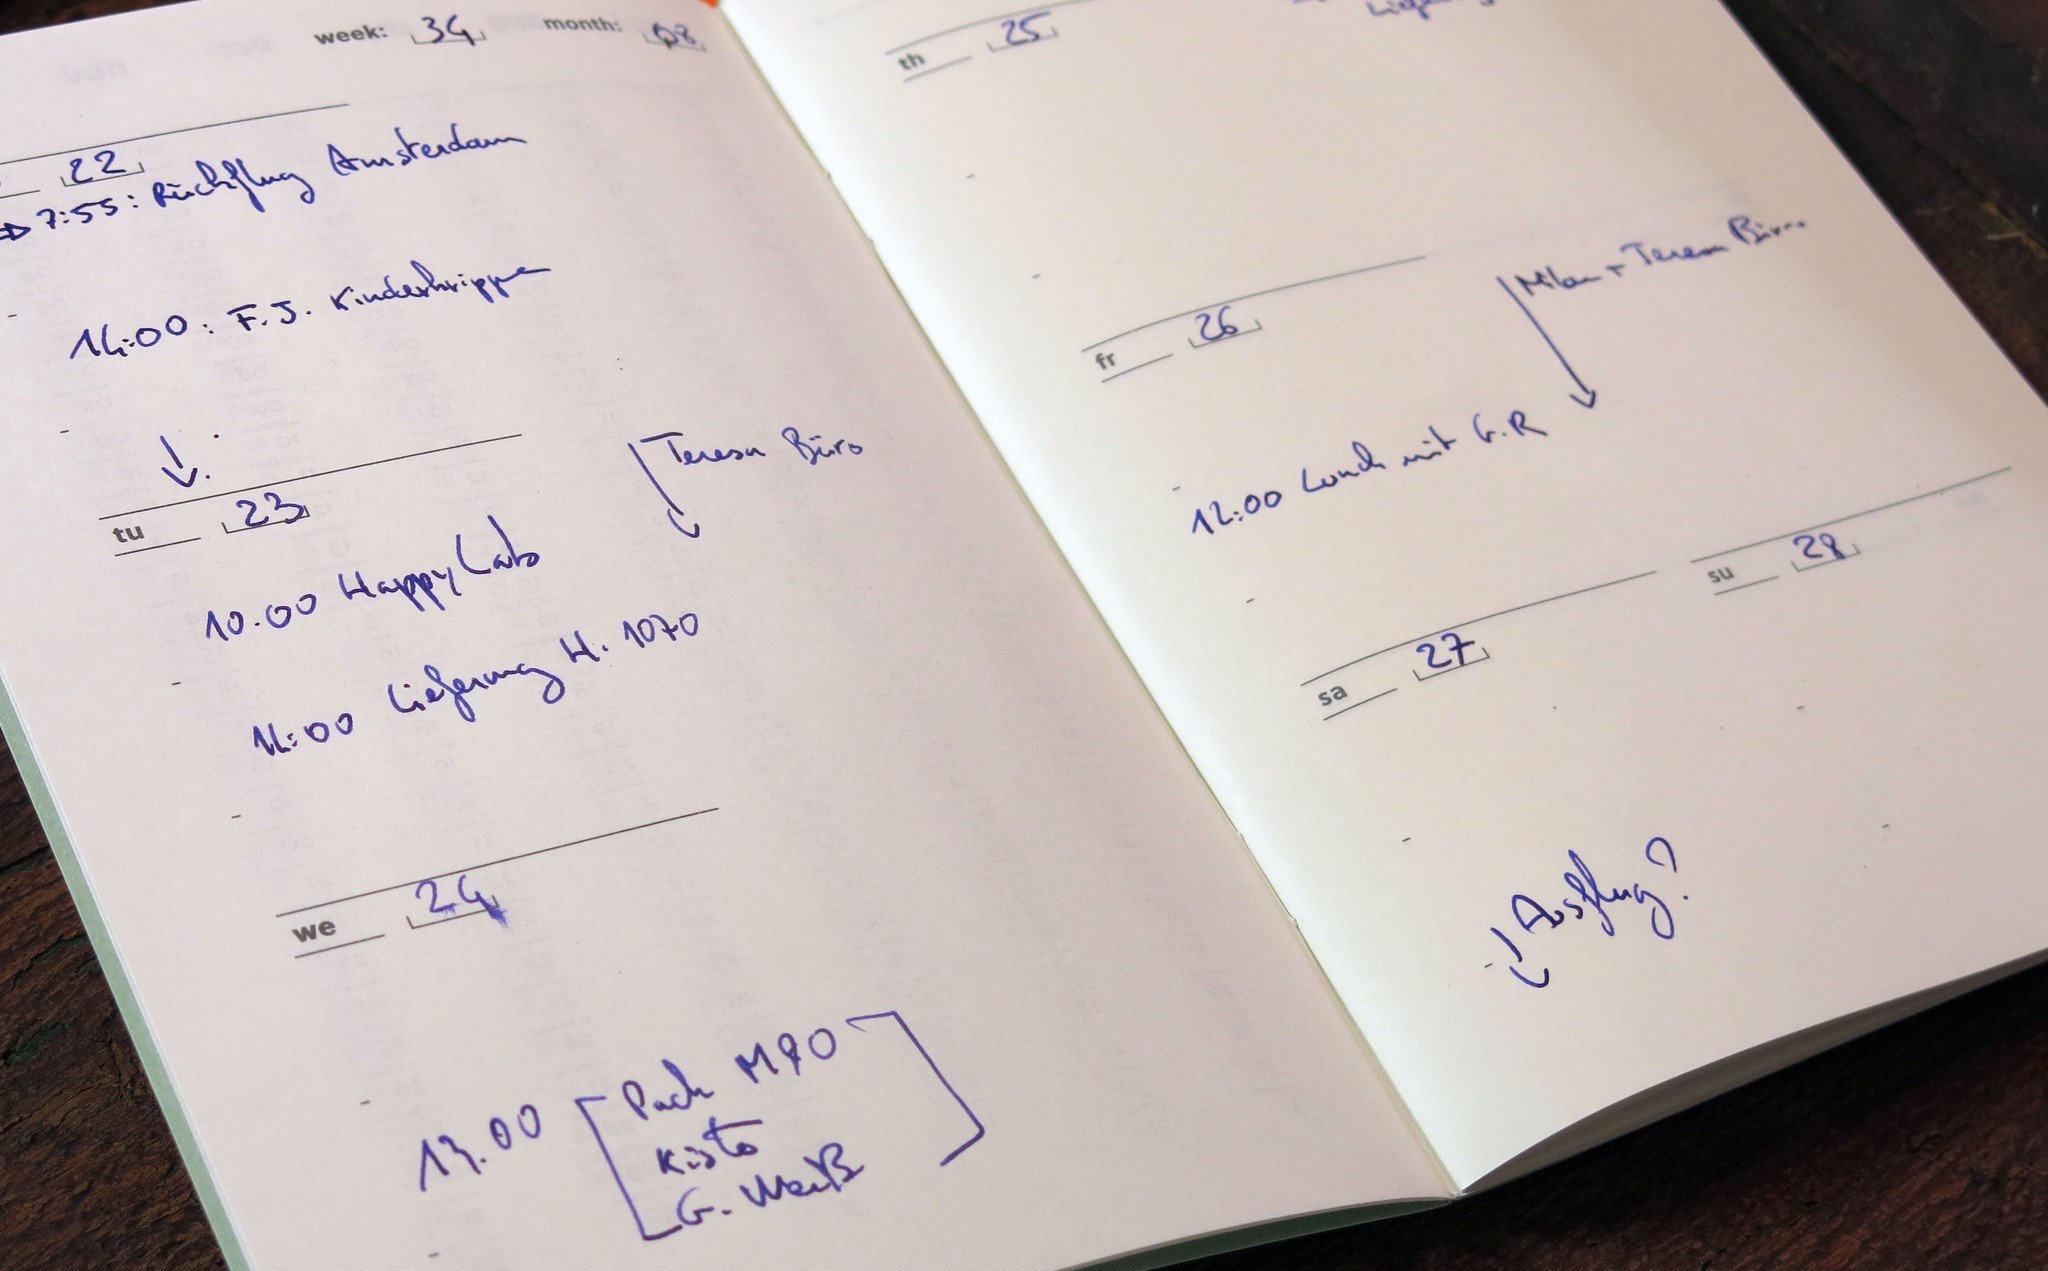 week: 34 month: 08
22
7:55: Rückflug Amsterdam
14:00: F.J. Kinderkrippe
tu 23
Teresa Büro
10.00 HappyLab
Lieferung H. 1070
we 24
13.00 Pack M90
G. Weiß
th 25
fr 26
Milan + Teresa Büro
12:00 Lunch mit G.R
sa 27
su 28
Ausflug?